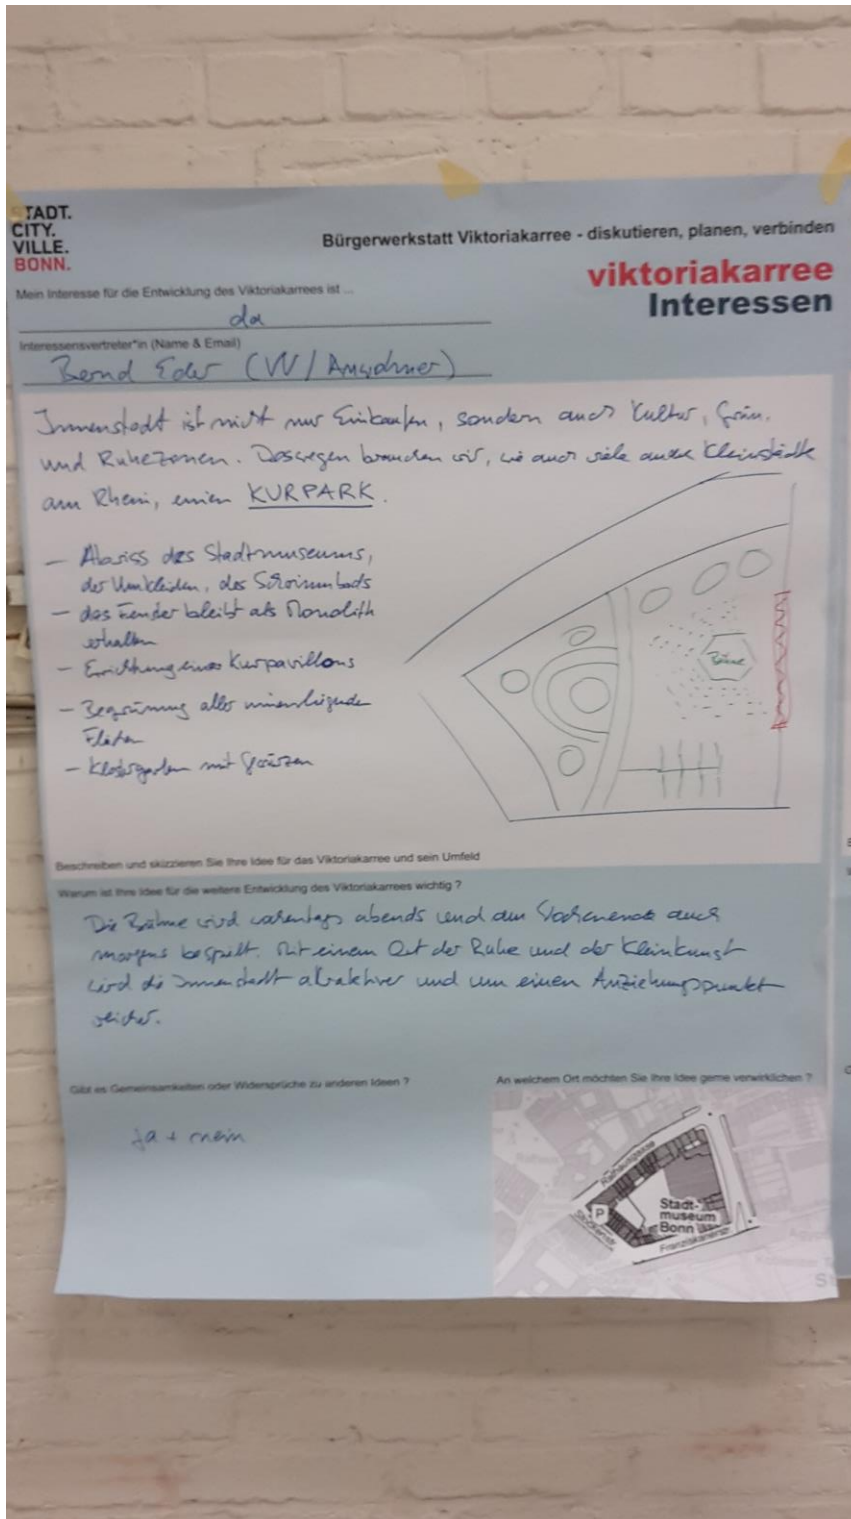 STADT.
CITY.
VILLE.
BONN.
Bürgerwerkstatt Viktoriakarree - diskutieren, planen, verbinden
viktoriakarree
Interessen
Mein Interesse für die Entwicklung des Viktoriakarrees ist ...
da
Interessensvertreter*in (Name & Email)
Bernd Eder (VV/Anwohner)
Innenstadt ist nicht nur Einkaufen, sondern auch Kultur, Grün.
und Ruhezonen. Deswegen brauchen wir, wie auch viele andere Kleinstädte
am Rhein, einen KURPARK.
- Abriss des Stadtmuseums,
der Umkleiden, des Schwimmbads
- das Fenster bleibt als Monolith
erhalten
- Errichtung eines Kurpavillons
- Begrünung aller
Flächen
- Klostergarten mit
Bühne
Beschreiben und skizzieren Sie Ihre Idee für das Viktoriakarree und sein Umfeld
Warum ist Ihre Idee für die weitere Entwicklung des Viktoriakarrees wichtig ?
Die Bühne wird wochentags abends und am Wochenende auch
morgens bespielt. Mit einem Ort der Ruhe und der Kleinkunst
wird die Innenstadt attraktiver und um einen Anziehungspunkt
reicher.
Gibt es Gemeinsamkeiten oder Widersprüche zu anderen Ideen ?
ja + nein
An welchem Ort möchten Sie Ihre Idee gerne verwirklichen ?
Rathausgasse
P
Stockenstr.
Stadt-
museum
Bonn
Franziskanerstr.